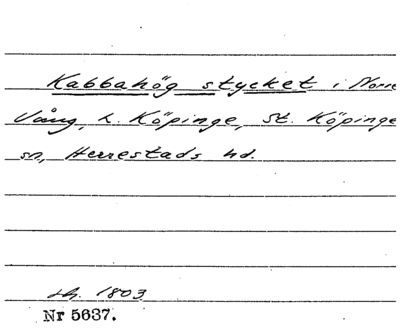 Kabbahög stycket i Norre
Vång, L. Köpinge, St. Köpinge
sn, Herrestads hd.
1803
Nr 5637.